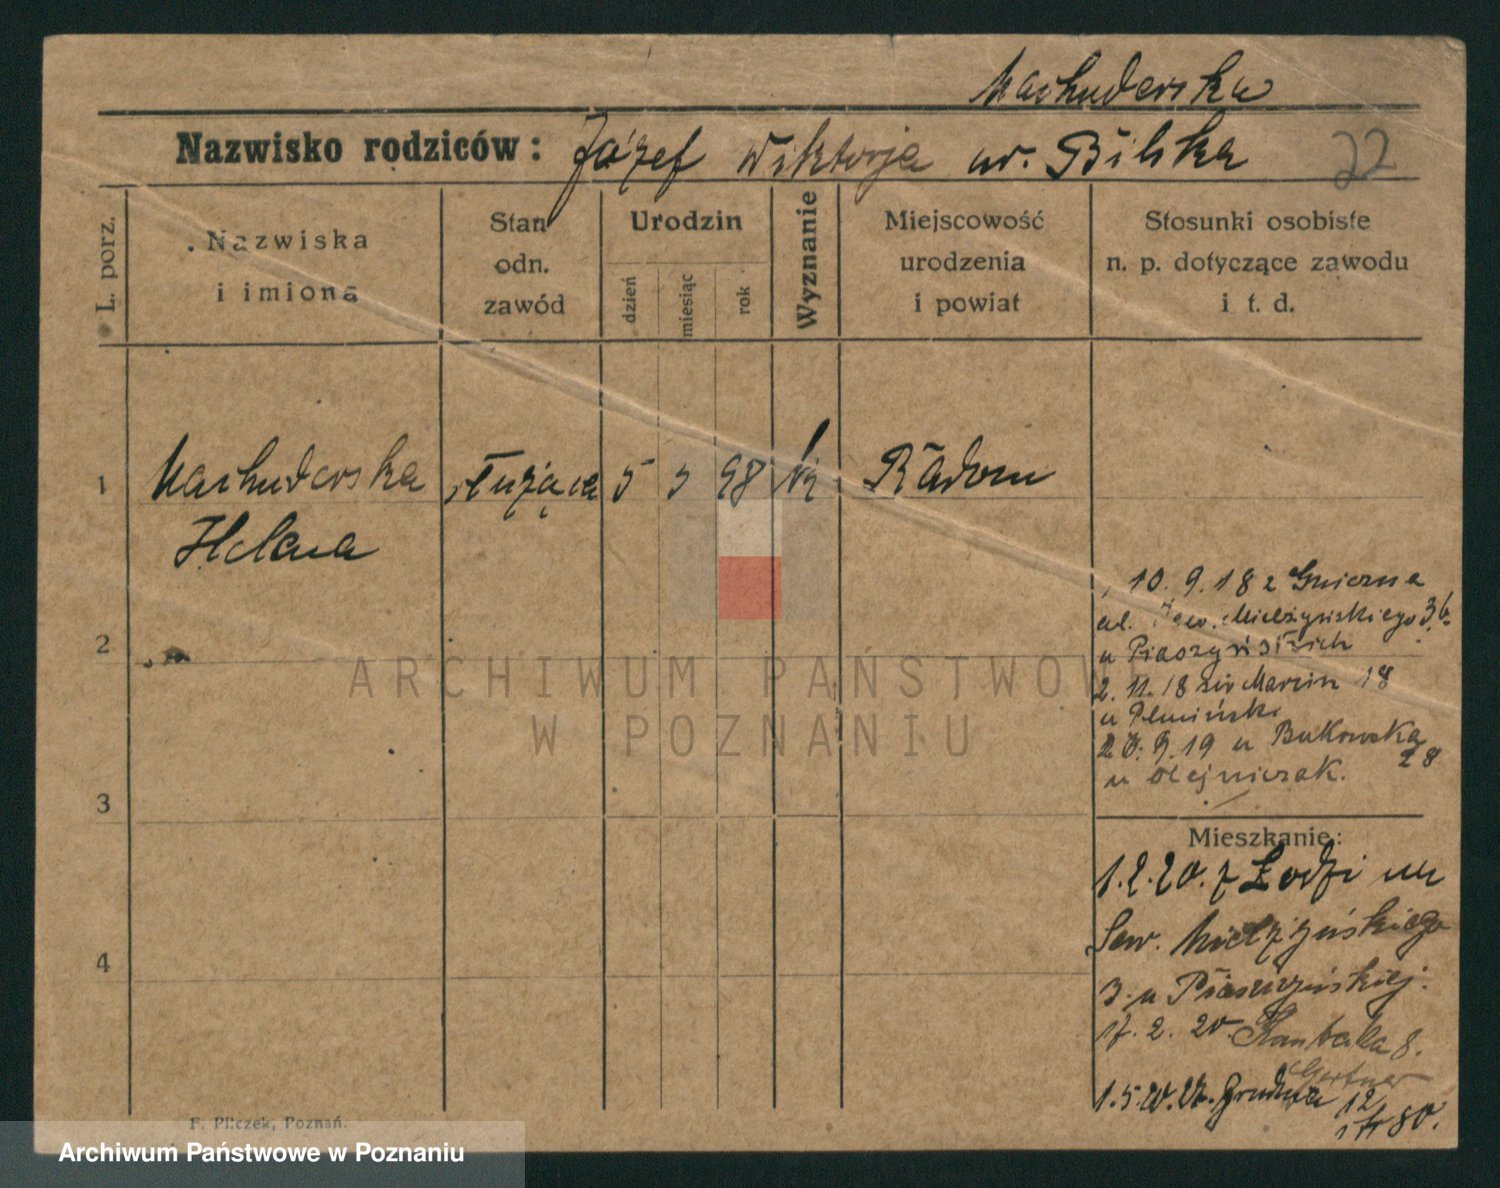 Machuderska
Nazwisko rodziców: Józef Wiktorja ur. Bilska 22
L. porz.
Nazwiska
i imiona
Stan
odn.
zawód
Urodzin
dzień
miesiąc
rok
Wyznanie
Miejscowość
urodzenia
i powiat
Stosunki osobiste
n. p. dotyczące zawodu
i t. d.
1 Machuderska służąca 5 3 98 Radom
Helena
10. 9. 18 z Gniezna
ul. Sew. Mielżyńskiego 36
2
u
2. 11. 18 św Marcin 18
u
20. 9. 19 u Bukowska
28
u Olejniczak.
3
Mieszkanie:
1. 2. 20. z Łodzi
Sew. Mielżyńskiego
4
3. u Piaszczyńskiej.
17. 2. 20. Kantaka 8.
1. 5. 20.
12
F. Pilczek, Poznań.
ARCHIWUM PAŃSTWOW
W POZNANIU
Archiwum Państwowe w Poznaniu